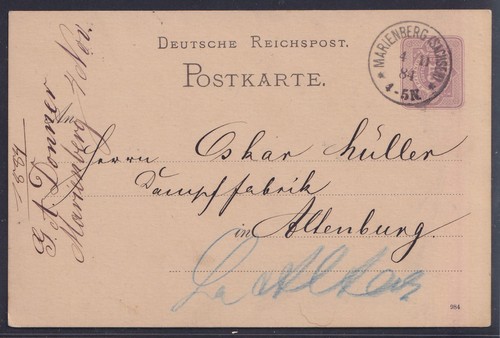 DEUTSCHE REICHSPOST.
POSTKARTE.
* MARIENBERG (SACHSEN) *
4 11
84
4-5N.
Herrn Oskar Müller
Dampffabrik
in Altenburg
G. A. Donner
Marienberg 4 Nov.
1884
984